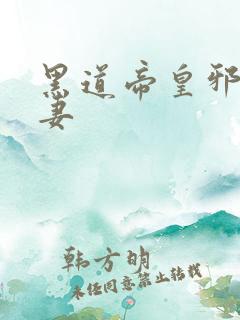 黑道帝皇邪
妻
韩方明
未经同意禁止转载